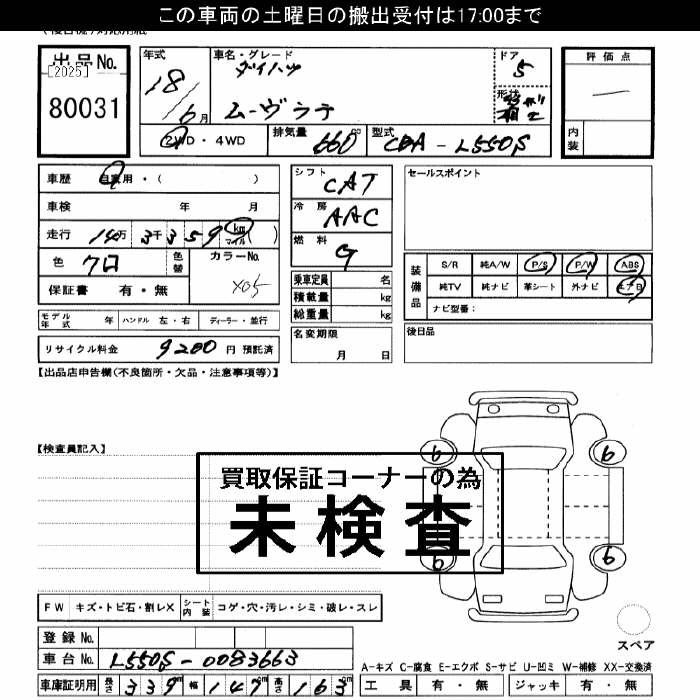 この車両の土曜日の搬出受付は17:00まで
出品No.
[2025]
80031
年式
18
6月
車名・グレード
ダイハツ
ムーヴラテ
ドア
5
形状
評価点
内装
2WD・4WD
排気量
660 cc
型式
CBA - L550S
車歴 自家用・( )
車検 年 月
走行 14万 3千359 km マイル ( )
色 クロ 色替
カラーNo.
X05
保証書 有・無
モデル年式 年 ハンドル 左・右 ディーラー・並行
リサイクル料金 9200 円 預託済
シフト
CAT
冷房
AAC
燃料
G
乗車定員 名
積載量 kg
総重量 kg
名変期限
月 日
セールスポイント
装備品
S/R 純A/W P/S P/W ABS
純TV 純ナビ 革シート 外ナビ エアB
ナビ型番:
後日品
【出品店申告欄(不良箇所・欠品・注意事項等)】
【検査員記入】
買取保証コーナーの為
未検査
6
6
6
6
FW キズ・トビ石・割レX シート内装 コゲ・穴・汚レ・シミ・破レ・スレ
登録No.
車台No. L550S-0083663
車庫証明用 長さ 339 cm 幅 147 cm 高さ 163 cm
スペア
A-キズ C-腐食 E-エクボ S-サビ U-凹ミ W-補修 XX-交換済
工具 有・無 ジャッキ 有・無